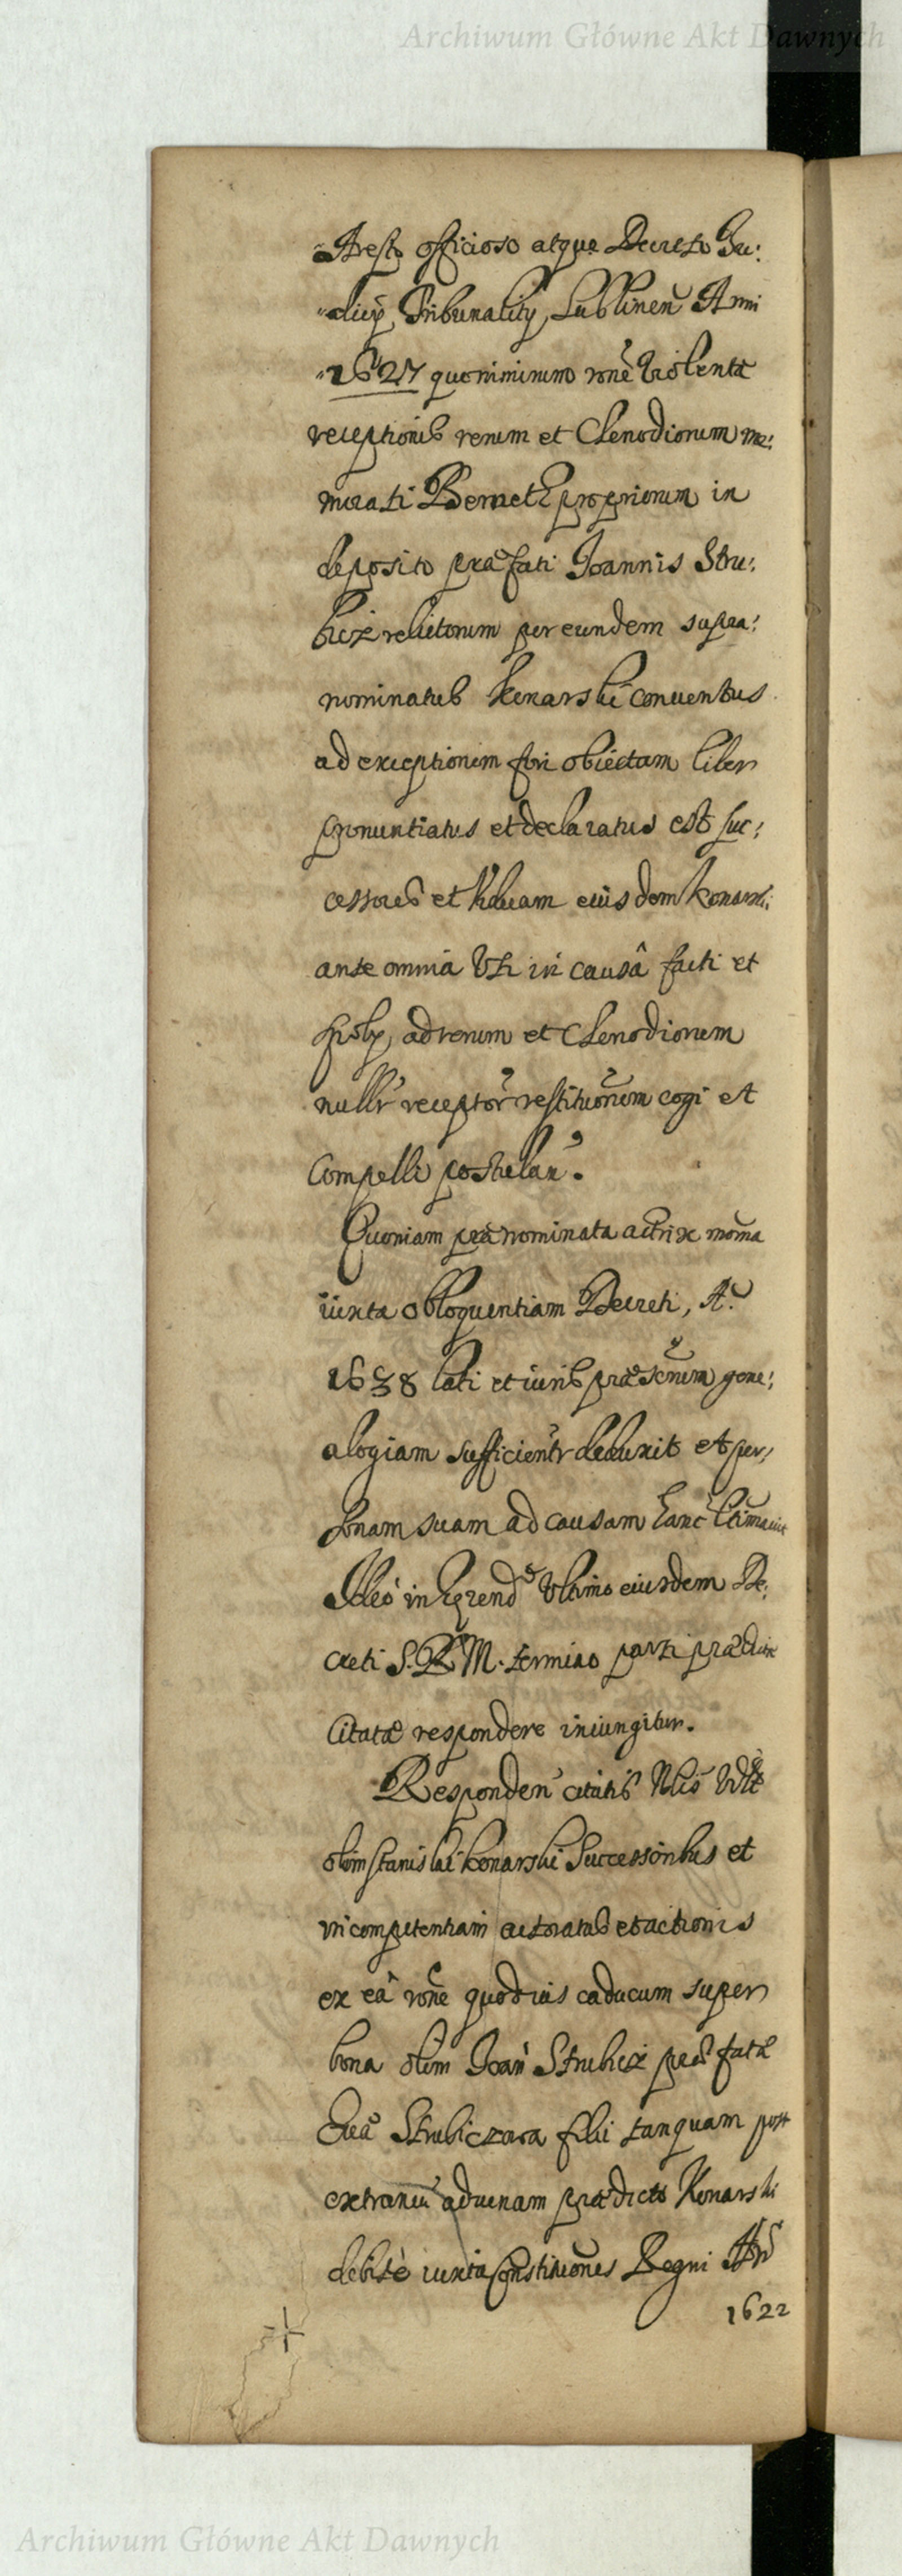 Archiwum Główne Akt Dawnych
Aresto officioso atque Decreto Iu:
Tribunalis Lublinen Anni
1627 quonimimum rone Violenta
receptionis rerum et Clenodiorum me:
morati Berneth propriorum in
deposito præfati Joannis Stru:
bicz relictorum per eundem supra:
nominatus Konarski conuentus
ad exceptionem fori obiectam liber
pronuntiatus et declaratus est suc:
cessores et Viduam eiusdem Konarski
ante omnia Vti in causâ facti et
spolÿ, ad rerum et Clenodiorum
receptor restitu͠onem cogi et
Compelli postulan.
Quoniam prænominata actrix
iuxta obloquentiam Decreti, A.
1638 lati et iuris præsen͠um gene:
alogiam sufficientr deduxit et per:
sonam suam ad causam hanc
Ideo in ultimo eiusdem De:
creti S.R.M. termino parti prædictæ
Citatæ respondere iniungitur.
Responden citatis Nlis
olim Stanislai Konarski Successoribus et
incompetentiam actoratus et actionis
ex eâ rone quod ius caducum super
bona olim Joan Strubicz
Strubiczowa filii tanquam post
extraneu aduenam prædicto Konarski
debite iuxta Constitu͠ones Regni
1622
Archiwum Główne Akt Dawnych